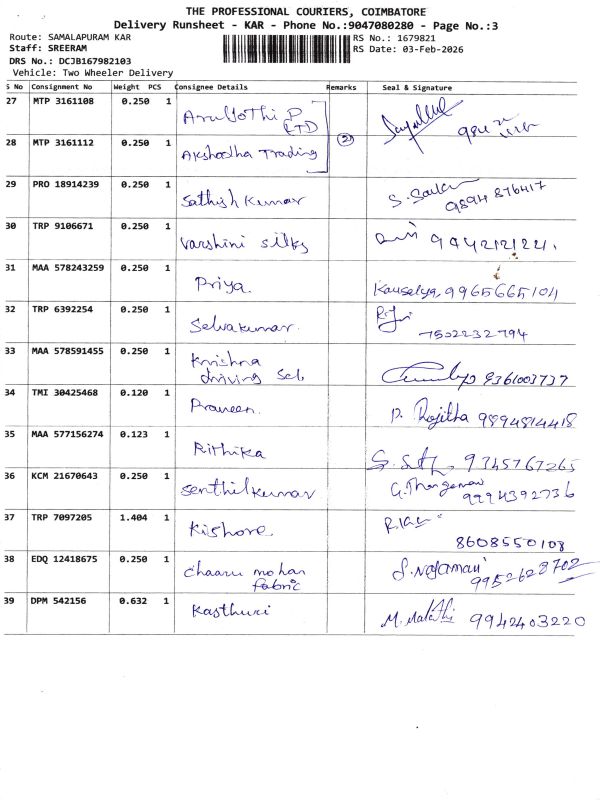 THE PROFESSIONAL COURIERS, COIMBATORE
Delivery Runsheet - KAR - Phone No.:9047080280 - Page No.:3
Route: SAMALAPURAM KAR
RS No.: 1679821
Staff: SREERAM
RS Date: 03-Feb-2026
DRS No.: DCJB167982103
Vehicle: Two Wheeler Delivery
S No Consignment No Weight PCS Consignee Details Remarks Seal & Signature
27 MTP 3161108 0.250 1 P
LTD
28 MTP 3161112 0.250 1 Akshodha Trading (2)
29 PRO 18914239 0.250 1 Sathish Kumar 9894876417
30 TRP 9106671 0.250 1 Varshini silks 9442121221.
31 MAA 578243259 0.250 1 Priya. Kauselya, 9965665104
32 TRP 6392254 0.250 1 Selvakumar.
7502232794
33 MAA 578591455 0.250 1 Krishna
driving Sch 9361003737
34 TMI 30425468 0.120 1 Praveen. P. Rajitha 9894814418
35 MAA 577156274 0.123 1 Rithika 9345767265
36 KCM 21670643 0.250 1 Senthilkumar
9994392736
37 TRP 7097205 1.404 1 Kishore.
8608550108
38 EDQ 12418675 0.250 1 Chaaru mohan
fabric 9952628702
39 DPM 542156 0.632 1 Kasthuri M. Malathi 9942403220